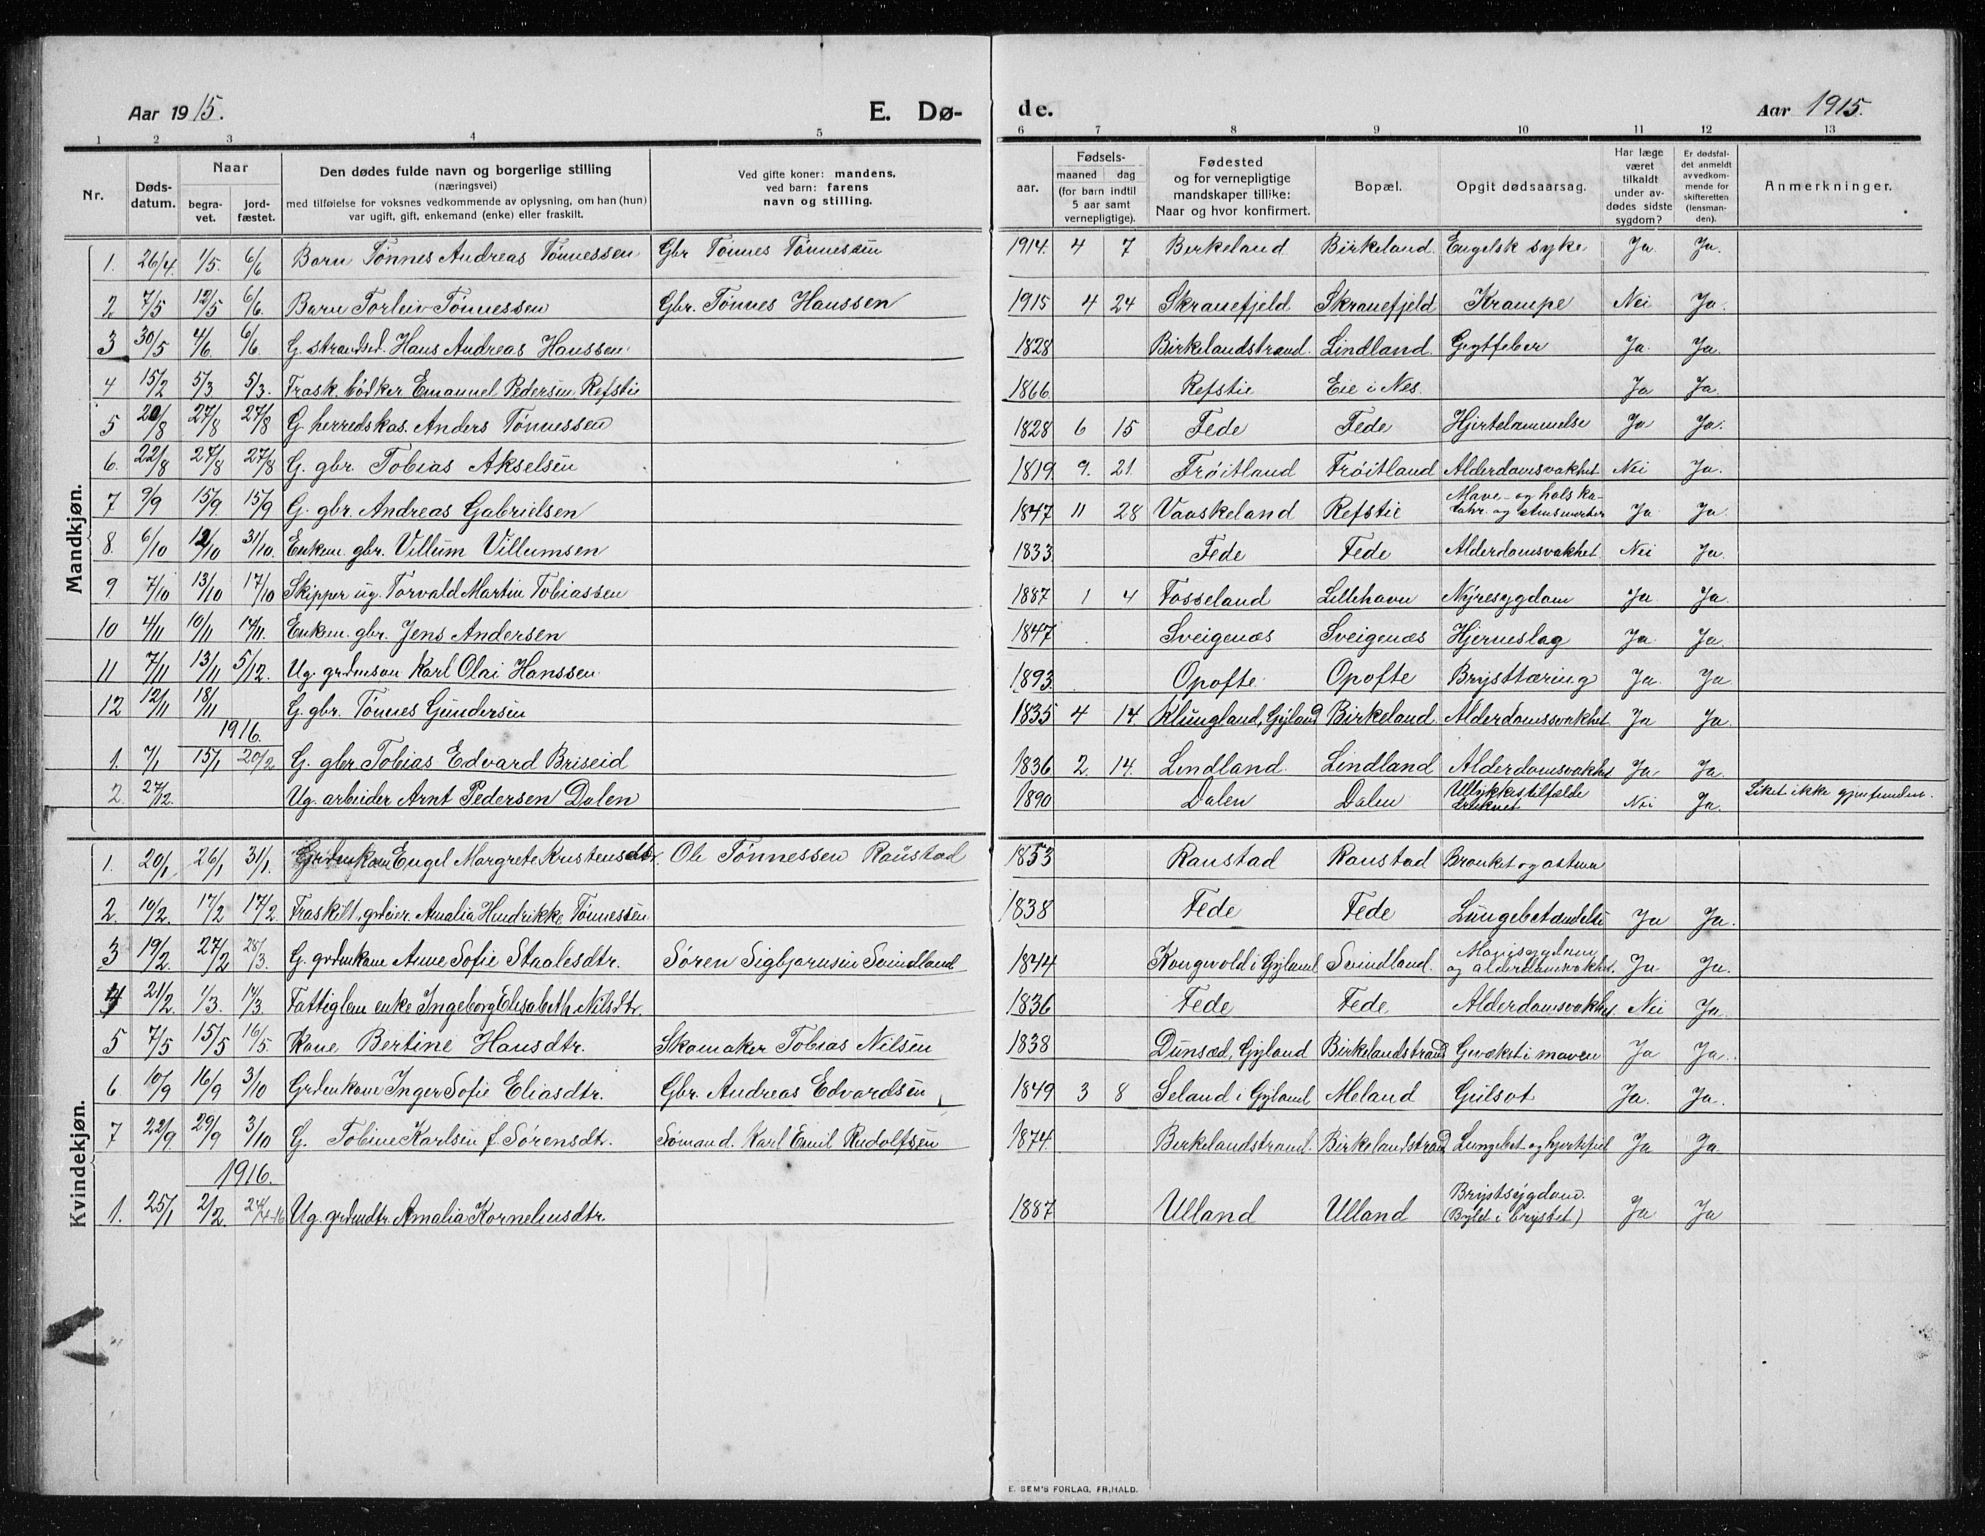 Aar 1915. E. Dø- de. Aar 1915.
1 2 3 4 5 6 7 8 9 10 11 12 13
Nr. Døds-datum. Naar begravet. jordfæstet. Den dødes fulde navn og borgerlige stilling (næringsvei) med tilføielse for voksnes vedkommende av oplysning, om han (hun) var ugift, gift, enkemand (enke) eller fraskilt. Ved gifte koner: mandens, ved barn: farens navn og stilling. aar. Fødsels- maaned dag (for barn indtil 5 aar samt vernepligtige). Fødested og for vernepligtige mandskaper tillike: Naar og hvor konfirmert. Bopæl. Opgit dødsaarsag. Har læge været tilkaldt under avdødes sidste sygdom? Er dødsfaldet anmeldt av vedkommende for skifteretten (lensmanden). Anmerkninger.
Mandkjøn.
1. 26/4. 1/5. 6/6 Barn Tönnes Andreas Tönnessen Gbr Tönnes Tönnesen 1914. 4 7 Birkeland Birkeland Engelsk syke Ja Ja.
2 7/5 12/5 6/6. Barn Torleiv Tönnessen Gbr. Tönnes Hanssen 1915 4 24 Skranefjeld Skranefjeld Krampe Nei Ja.
3 30/5 4/6. 6/6. G. strandsd. Hans Andreas Hanssen. 1828 Birkelandstrand. Lindland Gigtfeber Ja. Ja.
4 15/2 5/3 5/3. Frask. bödker Emanuel Pedersen Refstie 1866. Refstie Eie i Nes. Ja Ja.
5 20/8 27/8 27/8 G. herredskas. Anders Tönnessen 1828 6 15 Fede Fede Hjertelammelse Ja Ja.
6. 22/8 27/8 27/8 G. gbr. Tobias Akselsen 1819 9. 21. Fröitland Fröitland Alderdomsvakhet Nei Ja.
7 9/9 15/9 15/9 G. gbr. Andreas Gabrielsen 1847 11 28 Vaaskeland Refstie Mave- og hals ka- Ja Ja.
8. 6/10 12/10 31/10. Enkem. gbr. Villum Villumsen 1833 Fede Fede Alderdomsvakhet Nei Ja.
9 7/10 13/10 17/10 Skipper ug. Torvald Martin Tobiassen 1887 1 4 Fosseland Lillehavn Nyresygdom Ja Ja.
10 4/11 10/11 17/11. Enkem. gbr. Jens Andersen 1847 Sveigenæs Sveigenæs Hjerneslag Ja. Ja.
11 7/11 13/11 5/12. Ug. grdmsøn Karl Olai Hanssen 1893. Opofte Opofte Brysttæring Ja. Ja
12 12/11 18/11 G. gbr. Tönnes Gundersen 1835 4 14 Klungland, Gyland Birkeland Alderdomssvakhet Ja Ja
1916.
1. 7/1 15/1 20/2 G. gbr. Tobias Edvard Briseid 1836 2. 14. Lindland. Lindland Alderdomsvakhet Ja Ja.
2. 27/12. Ug. arbeider Arnt Pedersen Dalen 1890 Dalen Dalen Ulykkestilfælde Druknet Nei Ja. Liket ikke gjenfunden.
Kvindekjøn.
1. 20/1 26/1 31/1. Grdmkone Engel Margrete Kristensdtr. Ole Tönnessen Raustad 1853 Raustad Raustad Bronket og astma
2. 10/2. 17/2 17/2 Fraskilt, grdeier. Amalia Hendrikke Tönnessen 1838 Fede Fede Lungebetændelse Ja Ja.
3 19/2. 27/2 28/3. G. grdmkone Anne Sofie Staalesdtr. Sören Sigbjørnsen Svindland 1844 Kongevold i Gyland Svindland. Mavesygdom og alderdomsvakhet. Ja Ja.
4 21/2 1/3. 17/3. Fattiglem enke Ingeborg Elisabeth Nilsdtr. 1836 Fede Fede Alderdomsvakhet Nei Ja
5 7/5 15/5 16/5. Kone Bertine Hansdtr. Skomaker Tobias Nilsen 1838 Dunsæd, Gyland Birkelandstrand Gevækst i maven Ja Ja.
6 10/9 16/9 3/10 Grdmkone Inger Sofie Eliasdtr. Gbr. Andreas Edvardsen 1849 3 8 Seland i Gyland Meland Gulsot Ja. Ja.
7 22/9. 29/9 3/10 G. Tobine Karlsen f. Sörensdtr. Sömand. Karl Emil Rudolfsen 1874. Birkelandstrand. Birkelandstrand Lungebet og hjertefeil Ja Ja.
1916.
1. 25/1 2/2. 24/4-16 Ug. grdmdtr. Amalia Korneliusdtr. 1887 Ulland Ulland Brystsygdom. (Byld i brystet) Ja Ja
E. SEM'S FORLAG, FR.HALD.